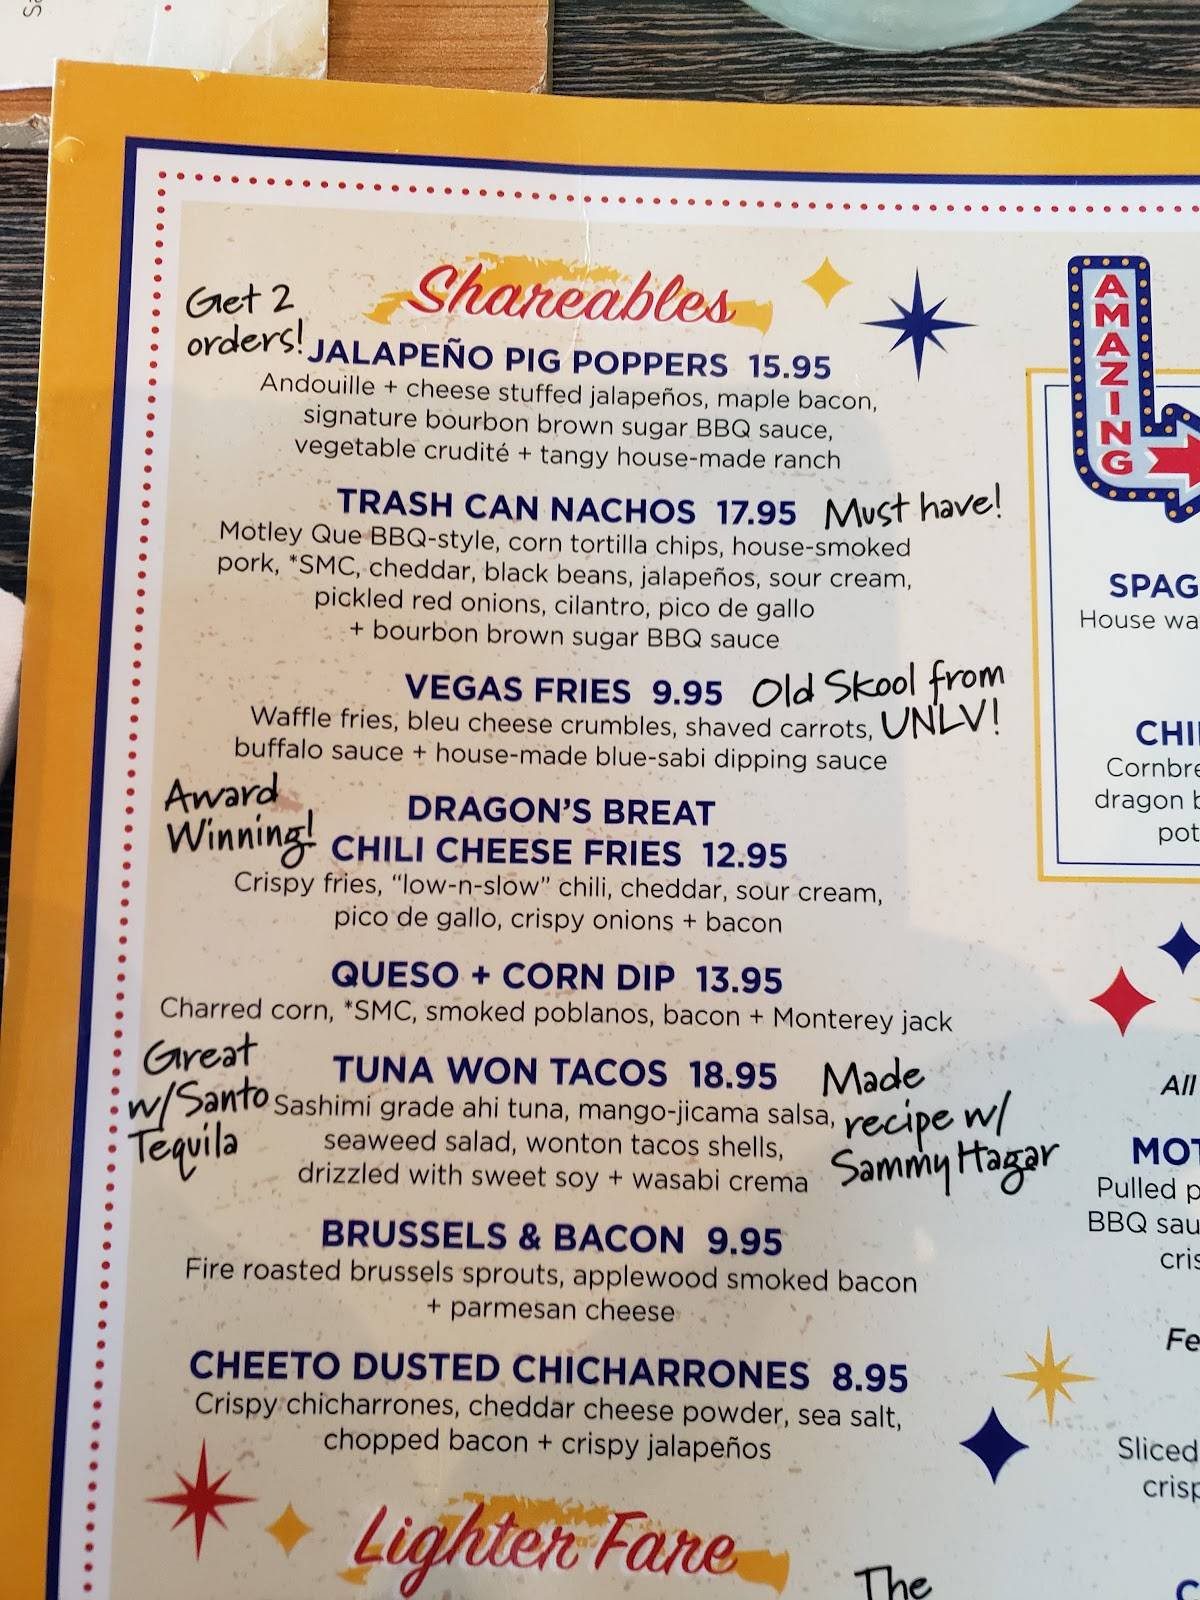 Shareables
Get 2
orders!
JALAPEÑO PIG POPPERS 15.95
Andouille + cheese stuffed jalapeños, maple bacon,
signature bourbon brown sugar BBQ sauce,
vegetable crudité + tangy house-made ranch
TRASH CAN NACHOS 17.95 Must have!
Motley Que BBQ-style, corn tortilla chips, house-smoked
pork, *SMC, cheddar, black beans, jalapeños, sour cream,
pickled red onions, cilantro, pico de gallo
+ bourbon brown sugar BBQ sauce
VEGAS FRIES 9.95 Old Skool from
UNLV!
Waffle fries, bleu cheese crumbles, shaved carrots,
buffalo sauce + house-made blue-sabi dipping sauce
Award
Winning!
DRAGON'S BREAT
CHILI CHEESE FRIES 12.95
Crispy fries, "low-n-slow" chili, cheddar, sour cream,
pico de gallo, crispy onions + bacon
QUESO + CORN DIP 13.95
Charred corn, *SMC, smoked poblanos, bacon + Monterey jack
Great
w/Santo
Tequila
TUNA WON TACOS 18.95
Sashimi grade ahi tuna, mango-jicama salsa,
seaweed salad, wonton tacos shells,
drizzled with sweet soy + wasabi crema
Made
recipe w/
Sammy Hagar
BRUSSELS & BACON 9.95
Fire roasted brussels sprouts, applewood smoked bacon
+ parmesan cheese
CHEETO DUSTED CHICHARRONES 8.95
Crispy chicharrones, cheddar cheese powder, sea salt,
chopped bacon + crispy jalapeños
Lighter Fare
AMAZING
SPAG
House wa
CHI
Cornbre
dragon b
pot
All
MOT
Pulled p
BBQ sau
cris
Fe
Sliced
crisp
The
C